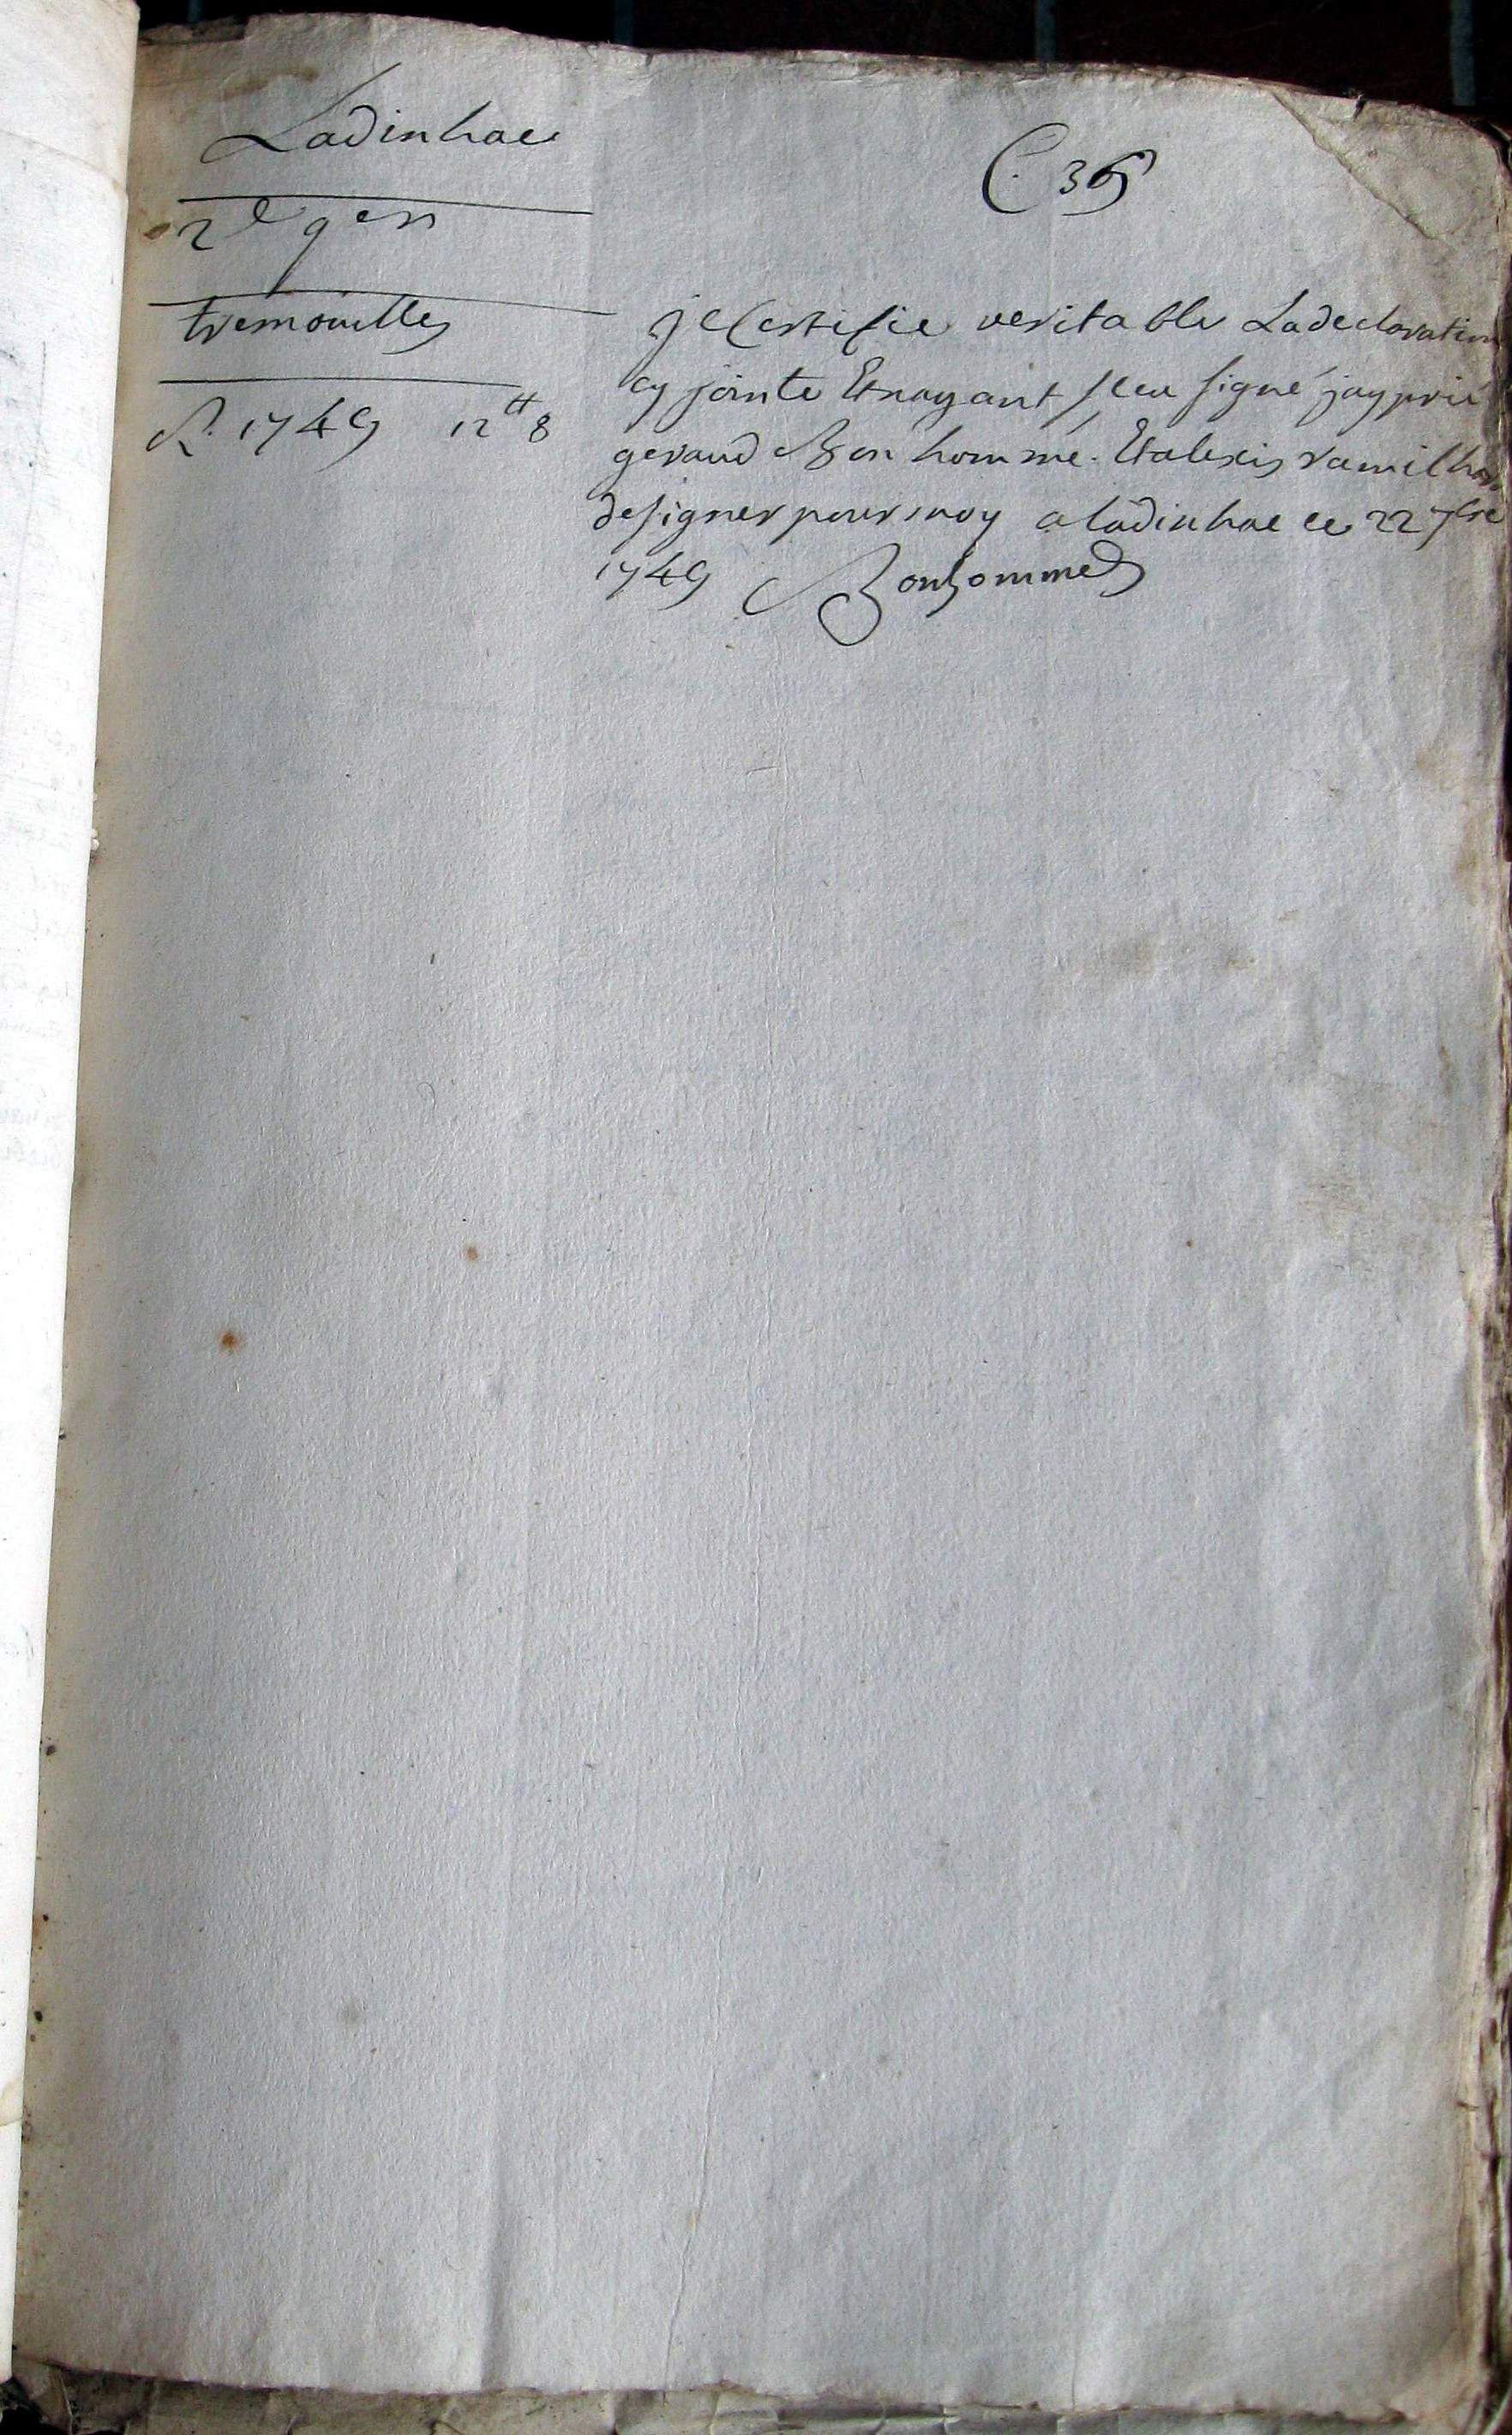 Ladinhac
2e gen
tremouilles
R. 1749 12# 8
C 36
je Certifie veritable Ladeclaration
cy jointe Etnayant sceu signé jay prié
geraud Bon homme. Etalexis ramilhac
designer pour moy a ladinhac ce 22 7bre
1749 Bonhomme